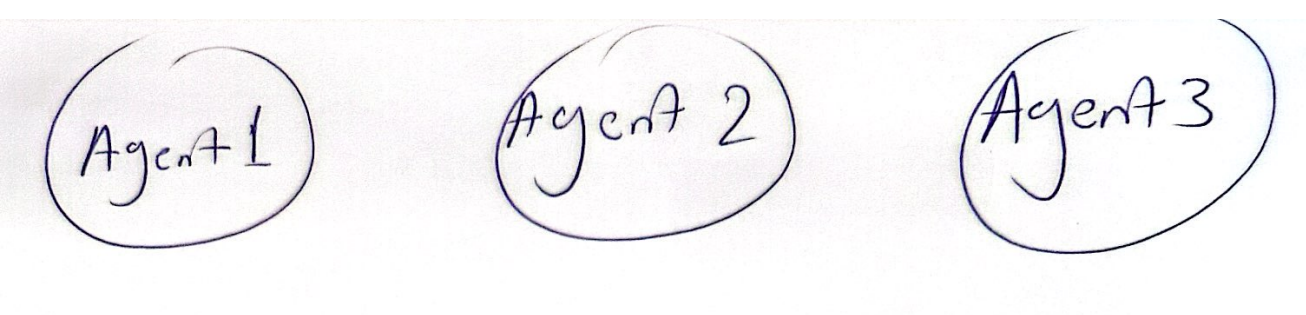 Agent 1 Agent 2 Agent 3